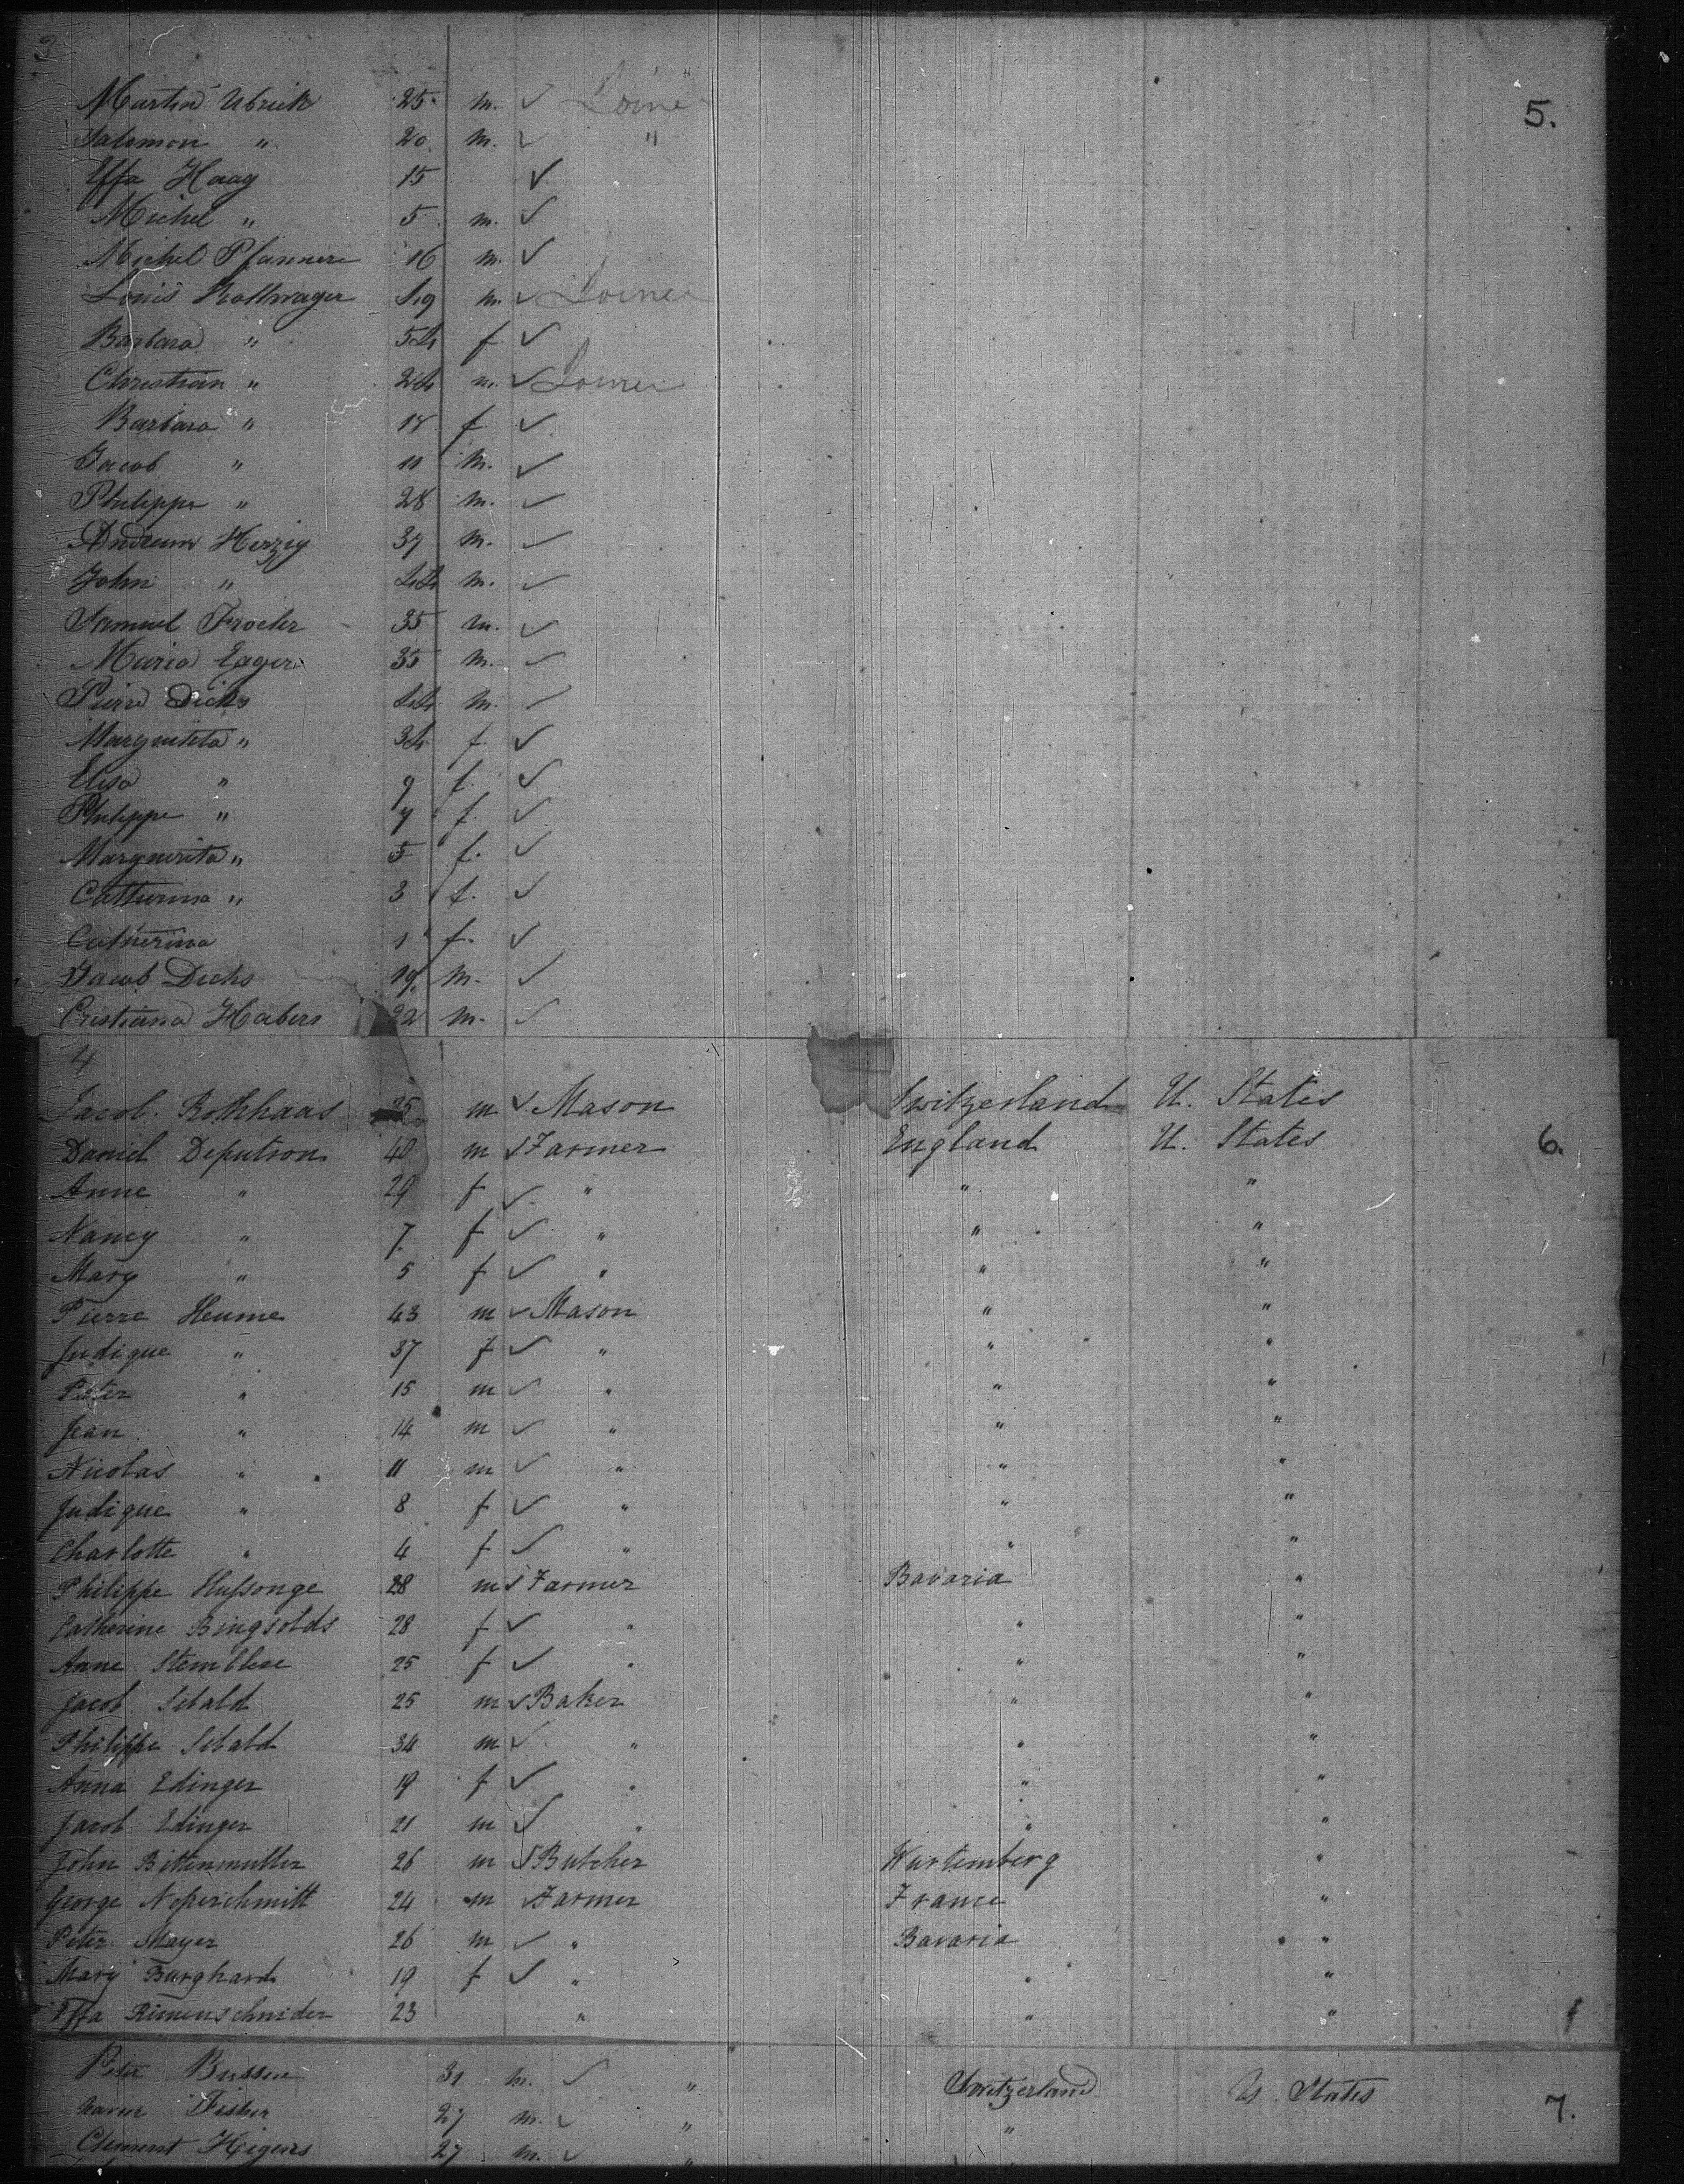 3
Martin Ubrick 25 m. ✓
Salomon " 20 m. ✓ "
Effa Haag 15 ✓
Michel " 5 m. ✓
Michel Pfannere 16 m. ✓
Louis Rottwager 49 m. ✓
Barbara " 54 f ✓
Christian " 24 m. ✓
Barbara " 18 f ✓
Jacob " 11 m. ✓
Philippe " 28 m. ✓
Herzig 37 m. ✓
John " 44 m. ✓
Samuel 35 m. ✓
Maria Eager 35 m. ✓
Pierre Dicks 44 m. ✓
" 34 f ✓
Elisa " 9 f. ✓
Philippe " 7 f. ✓
Marguerita " 5 f. ✓
Catherina " 3 f. ✓
Catherina 1 f. ✓
Jacob Dicks 19 m. ✓
Cristiana Habers 22 m. ✓
5.
4
Jacob Rothhaas 25 m ✓ Mason Switzerland U. States
Daniel Deputron 40 m ✓ Farmer England U. States 6.
Anne " 29 f ✓ " " "
Nancy " 7 f ✓ " " "
Mary " 5 f ✓ " " "
Pierre Heume 43 m ✓ Mason " "
Judique " 37 f ✓ " " "
Peter " 15 m ✓ " " "
Jean " 14 m ✓ " " "
Nicolas " 11 m ✓ " " "
Judique " 8 f ✓ " " "
Charlotte " 4 f ✓ " " "
Philippe Hussonge 28 m ✓ Farmer Bavaria "
Catherine Bingsolds 28 f ✓ " " "
Anne Stemblese 25 f ✓ " " "
Jacob Sebald 25 m ✓ Baker " "
Philippe Sebald 34 m ✓ " " "
Anna Edinger 19 f ✓ " " "
Jacob Edinger 21 m ✓ " " "
John Bittenmutter 26 m ✓ Butcher Wurtemberg "
George Noperschmitt 24 m ✓ Farmer France "
Peter Mayer 26 m ✓ " Bavaria "
Mary Burghard 19 f ✓ " " "
Effa Rimenschnider 23 " " "
Peter Bussen 31 m. ✓ " Switzerland U. States
Fisher 27 m. ✓ " " 7.
Clement Higens 27 m. ✓ "